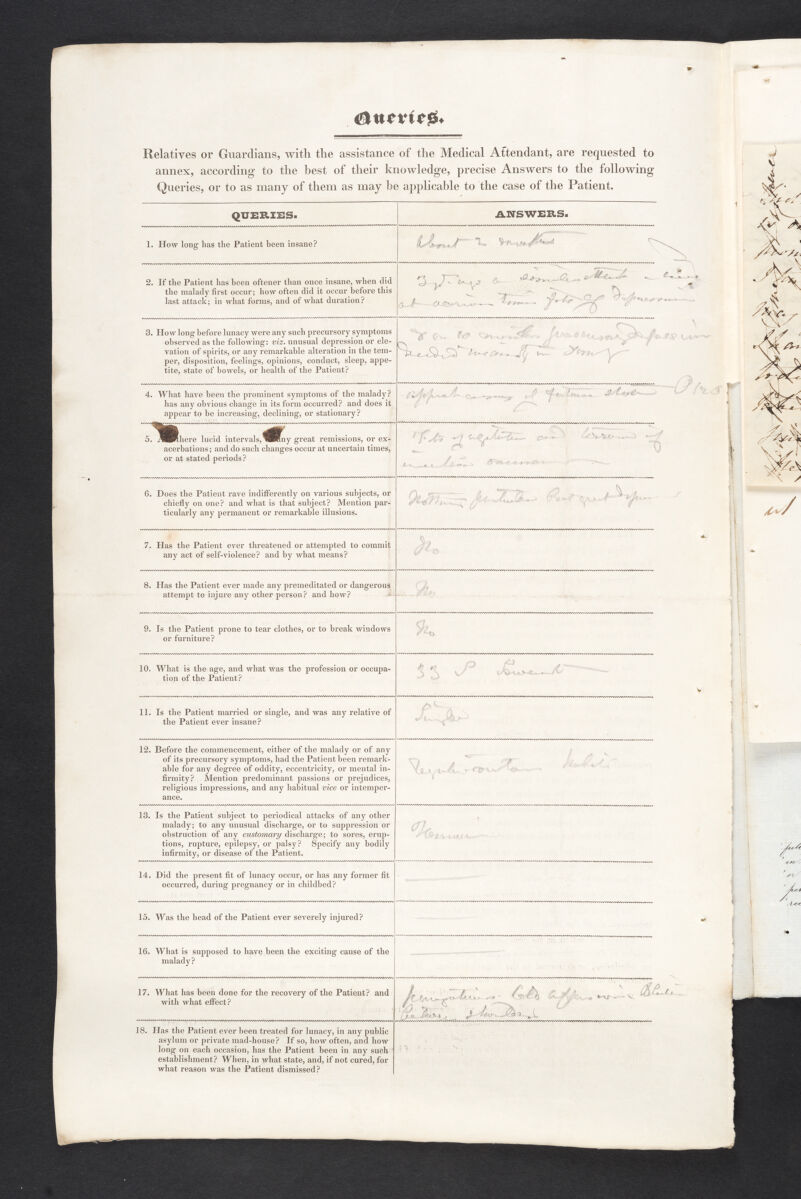 Queries.
Relatives or Guardians, with the assistance of the Medical Attendant, are requested to
annex, according to the best of their knowledge, precise Answers to the following
Queries, or to as many of them as may be applicable to the case of the Patient.
QUERIES.
ANSWERS.
1. How long has the Patient been insane?
About 2 months
2. If the Patient has been oftener than once insane, when did
the malady first occur; how often did it occur before this
last attack; in what forms, and of what duration?
3 ago a similar attack
at various times fits of depression
3. How long before lunacy were any such precursory symptoms
observed as the following: viz. unusual depression or ele-
vation of spirits, or any remarkable alteration in the tem-
per, disposition, feelings, opinions, conduct, sleep, appe-
tite, state of bowels, or health of the Patient?
8 or 10 months
4. What have been the prominent symptoms of the malady?
has any obvious change in its form occurred? and does it
appear to be increasing, declining, or stationary?
of future
5. here lucid intervals, ny great remissions, or ex-
acerbations; and do such changes occur at uncertain times,
or at stated periods?
Fits of agitation and of
6. Does the Patient rave indifferently on various subjects, or
chiefly on one? and what is that subject? Mention par-
ticularly any permanent or remarkable illusions.
Nothing particular But great
7. Has the Patient ever threatened or attempted to commit
any act of self-violence? and by what means?
No
8. Has the Patient ever made any premeditated or dangerous
attempt to injure any other person? and how?
No
9. Is the Patient prone to tear clothes, or to break windows
or furniture?
No
10. What is the age, and what was the profession or occupa-
tion of the Patient?
33 Servant
11. Is the Patient married or single, and was any relative of
the Patient ever insane?
Single
12. Before the commencement, either of the malady or of any
of its precursory symptoms, had the Patient been remark-
able for any degree of oddity, eccentricity, or mental in-
firmity? Mention predominant passions or prejudices,
religious impressions, and any habitual vice or intemper-
ance.
habits
13. Is the Patient subject to periodical attacks of any other
malady; to any unusual discharge, or to suppression or
obstruction of any customary discharge; to sores, erup-
tions, rupture, epilepsy, or palsy? Specify any bodily
infirmity, or disease of the Patient.
14. Did the present fit of lunacy occur, or has any former fit
occurred, during pregnancy or in childbed?
15. Was the head of the Patient ever severely injured?
16. What is supposed to have been the exciting cause of the
malady?
17. What has been done for the recovery of the Patient? and
with what effect?
Purgatives Cold
18. Has the Patient ever been treated for lunacy, in any public
asylum or private mad-house? If so, how often, and how
long on each occasion, has the Patient been in any such
establishment? When, in what state, and, if not cured, for
what reason was the Patient dismissed?